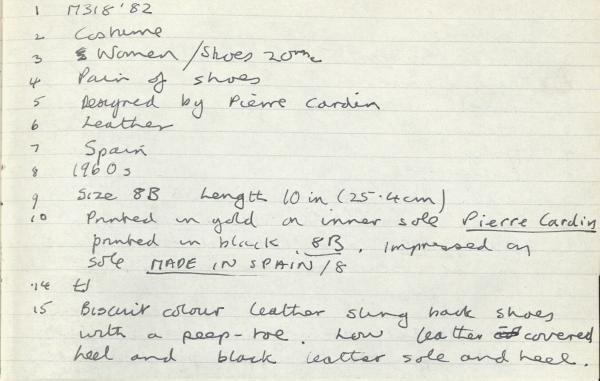 1 M318'82
2 Costume
3 Women / Shoes 20thc
4 Pair of shoes
5 Designed by Pierre Cardin
6 Leather
7 Spain
8 1960s
9 Size 8B Length 10 in (25.4cm)
10 Printed in gold on inner sole Pierre Cardin
printed in black 8B. Impressed on
sole MADE IN SPAIN/8
14
15 Biscuit colour leather sling back shoes
with a peep-toe. Low leather covered
heel and black leather sole and heel.